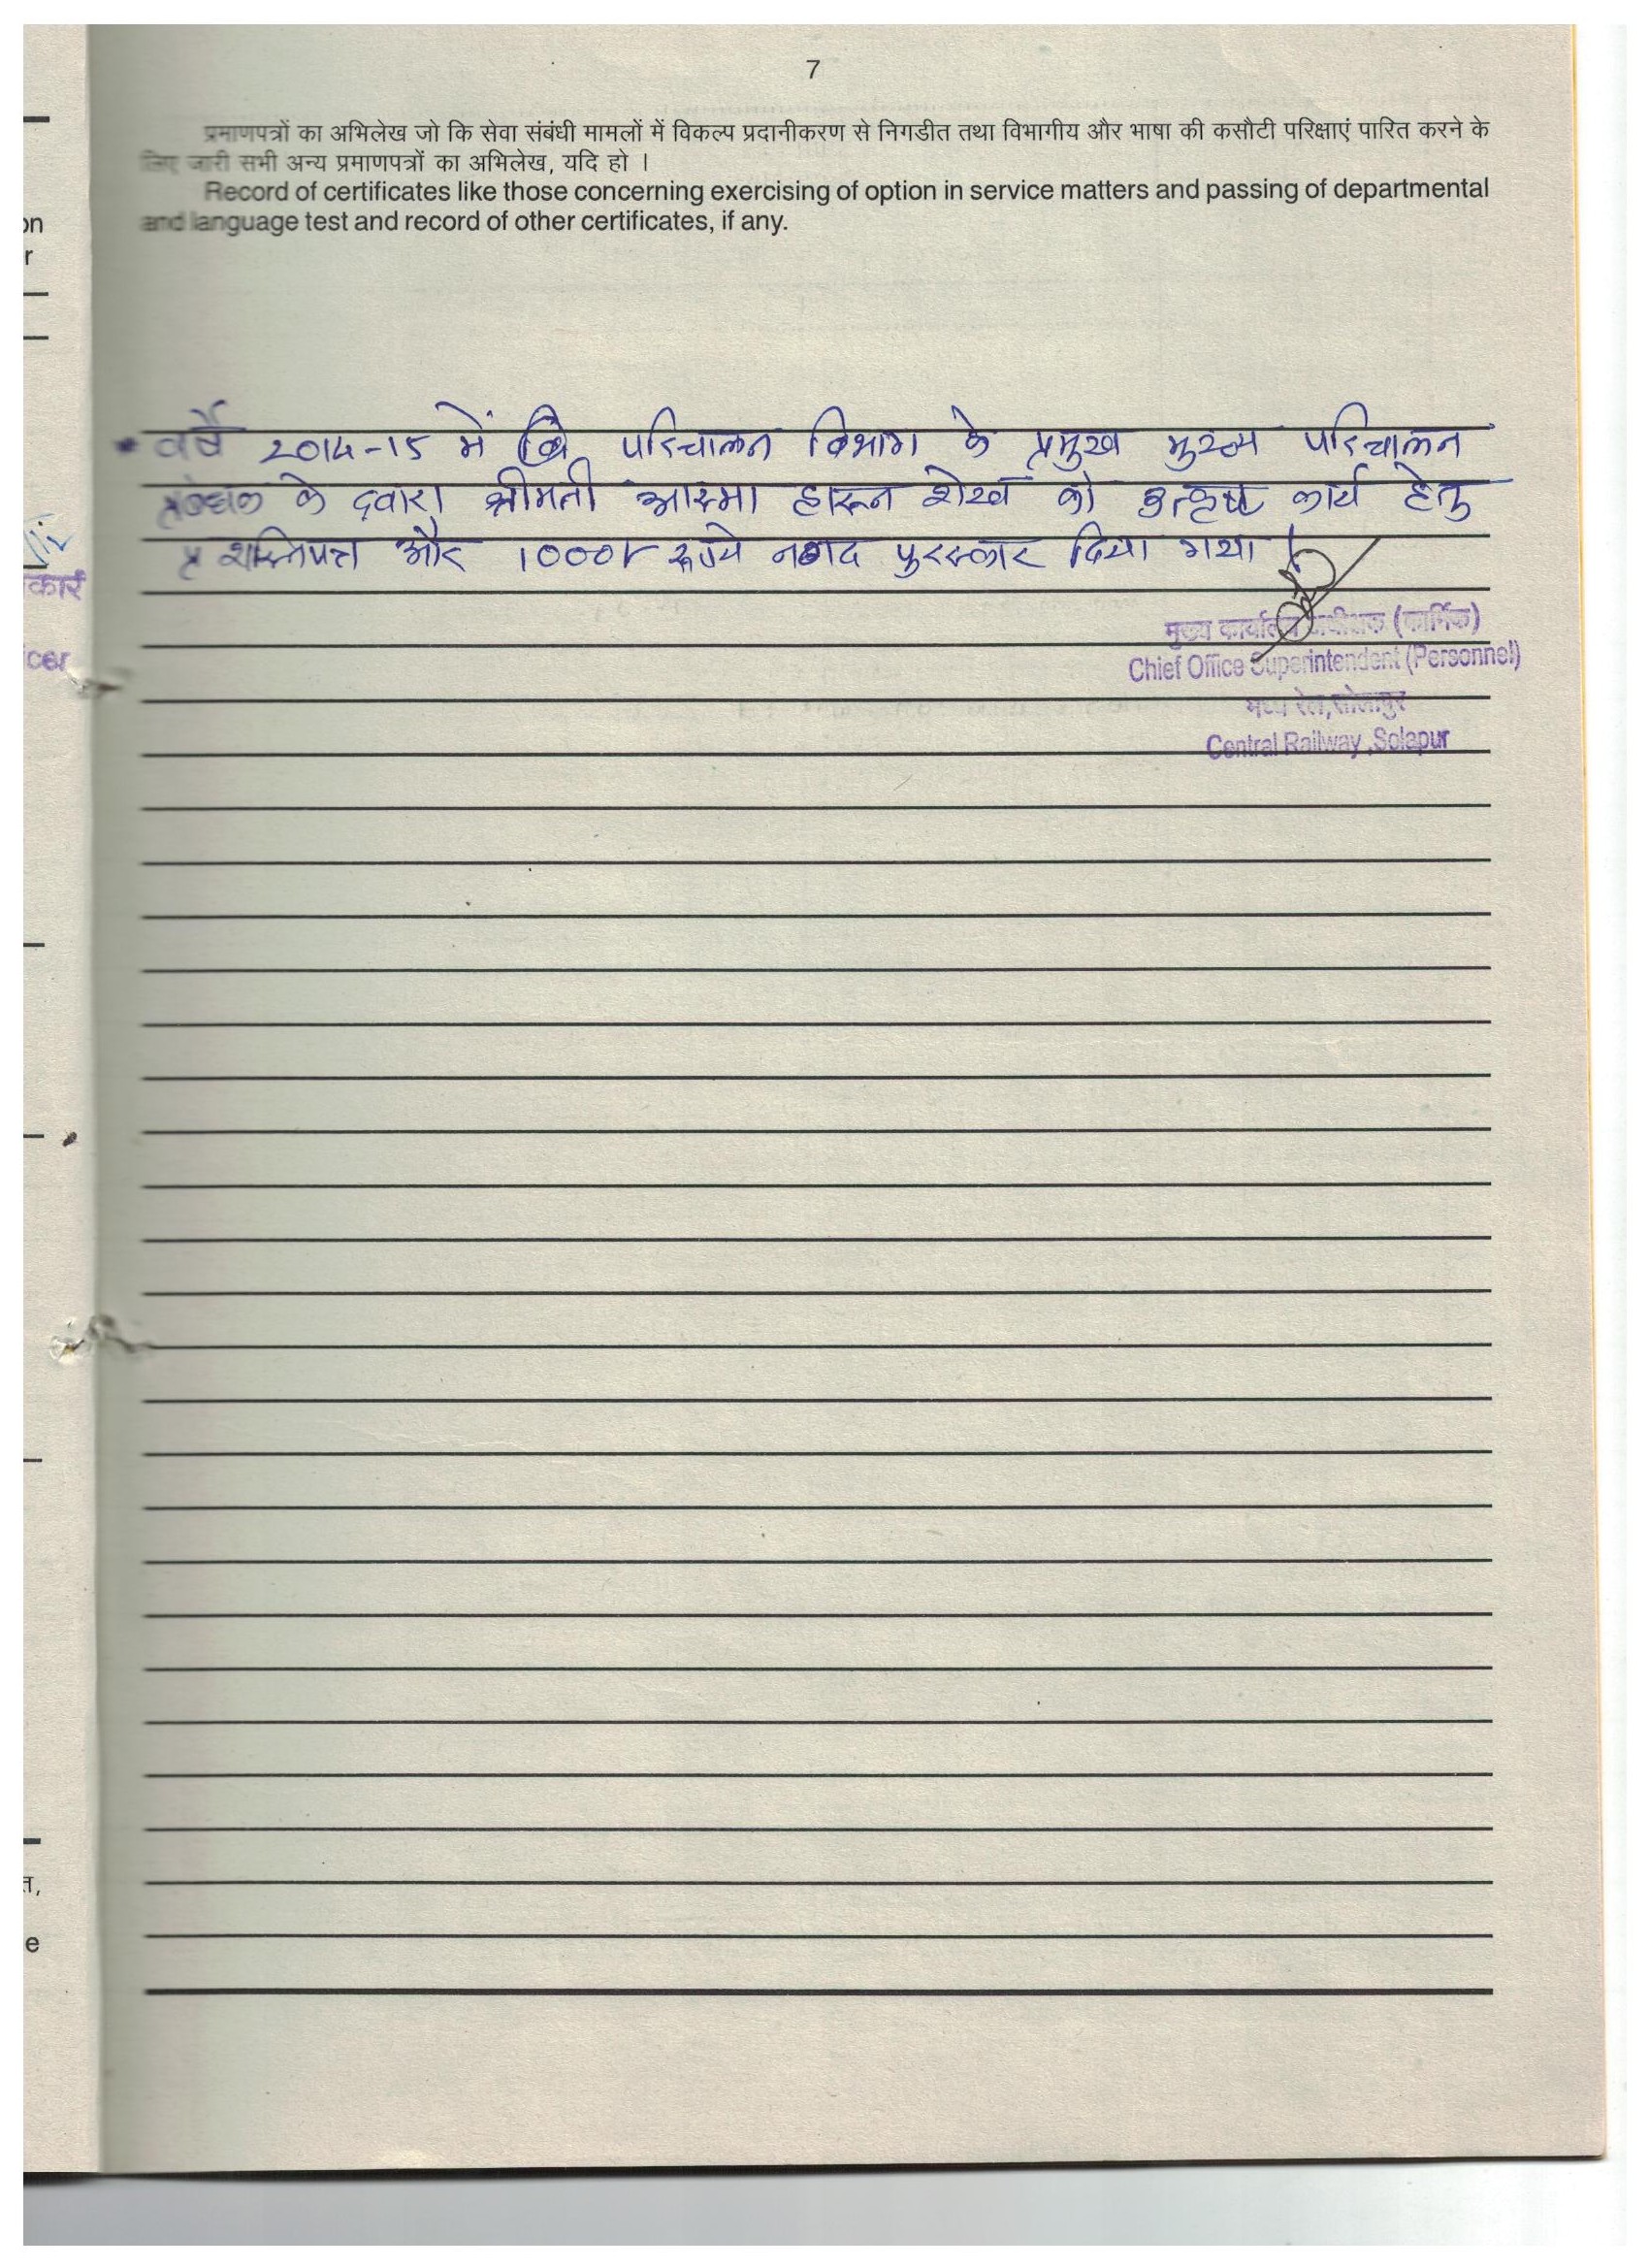 7
प्रमाणपत्रों का अभिलेख जो कि सेवा संबंधी मामलों में विकल्प प्रदानीकरण से निगडीत तथा विभागीय और भाषा की कसौटी परिक्षाएं पारित करने के
लिए जारी सभी अन्य प्रमाणपत्रों का अभिलेख, यदि हो ।
Record of certificates like those concerning exercising of option in service matters and passing of departmental
and language test and record of other certificates, if any.
वर्ष 2014-15 में परिचालन विभाग के प्रमुख मुख्य परिचालन
प्रबंधक के द्वारा श्रीमती आस्मा हारून शेख को उत्कृष्ट कार्य हेतु
प्रशस्तिपत्र और 1000/- रूपये नगद पुरस्कार दिया गया ।
मुख्य कार्यालय अधीक्षक (कार्मिक)
Chief Office Superintendent (Personnel)
मध्य रेल, सोलापुर
Central Railway, Solapur
on
r
कारी
icer
त,
e